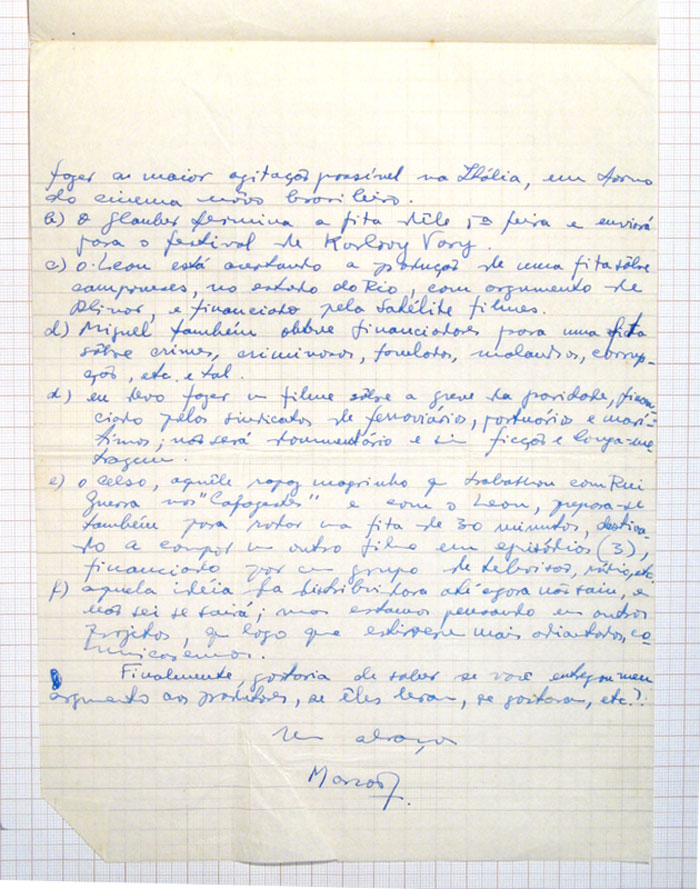 fazer a maior agitação possível na Itália, em torno
do cinema nôvo brasileiro.
b) O Glauber termina a fita dêle 5ª feira e enviará
para o festival de Karlovy Vary.
c) O Leon está acertando a produção de uma fita sôbre
camponeses, no estado do Rio, com argumento de
e financiado pela Satélite filmes.
d) Miguel também obteve financiadores para uma fita
sôbre crimes, criminosos, favelados, malandros, corrup-
ção, etc. e tal.
d) eu devo fazer um filme sôbre a greve da paridade, finan-
ciado pelos sindicatos de ferroviário, portuário e marí-
timos; não será documentário e sim ficção e longa-me-
tragem.
e) o Celso, aquêle rapaz magrinho q trabalhou com Rui
Guerra nos "Cafagestes" e com o Leon, prepara-se
também para rodar uma fita de 30 minutos, destina-
do a compor um outro filme em episódios (3),
financiado por um grupo de televisão, rádio, etc.
f) aquela idéia da distribuidora até agora não saiu, e
não sei se sairá; mas estamos pensando em outros
projetos, q logo que estiverem mais adiantados, co-
municaremos.
Finalmente, gostaria de saber se você entregou meu
argumento aos produtores, se êles leram, se gostaram, etc?
Um abraço
Marcos